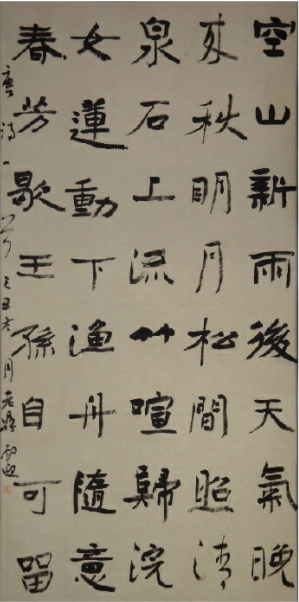 空山新雨後天氣晚
來秋明月松間照清
泉石上流竹喧歸浣
女蓮動下漁舟隨意
春芳歇王孫自可留
唐詩一首